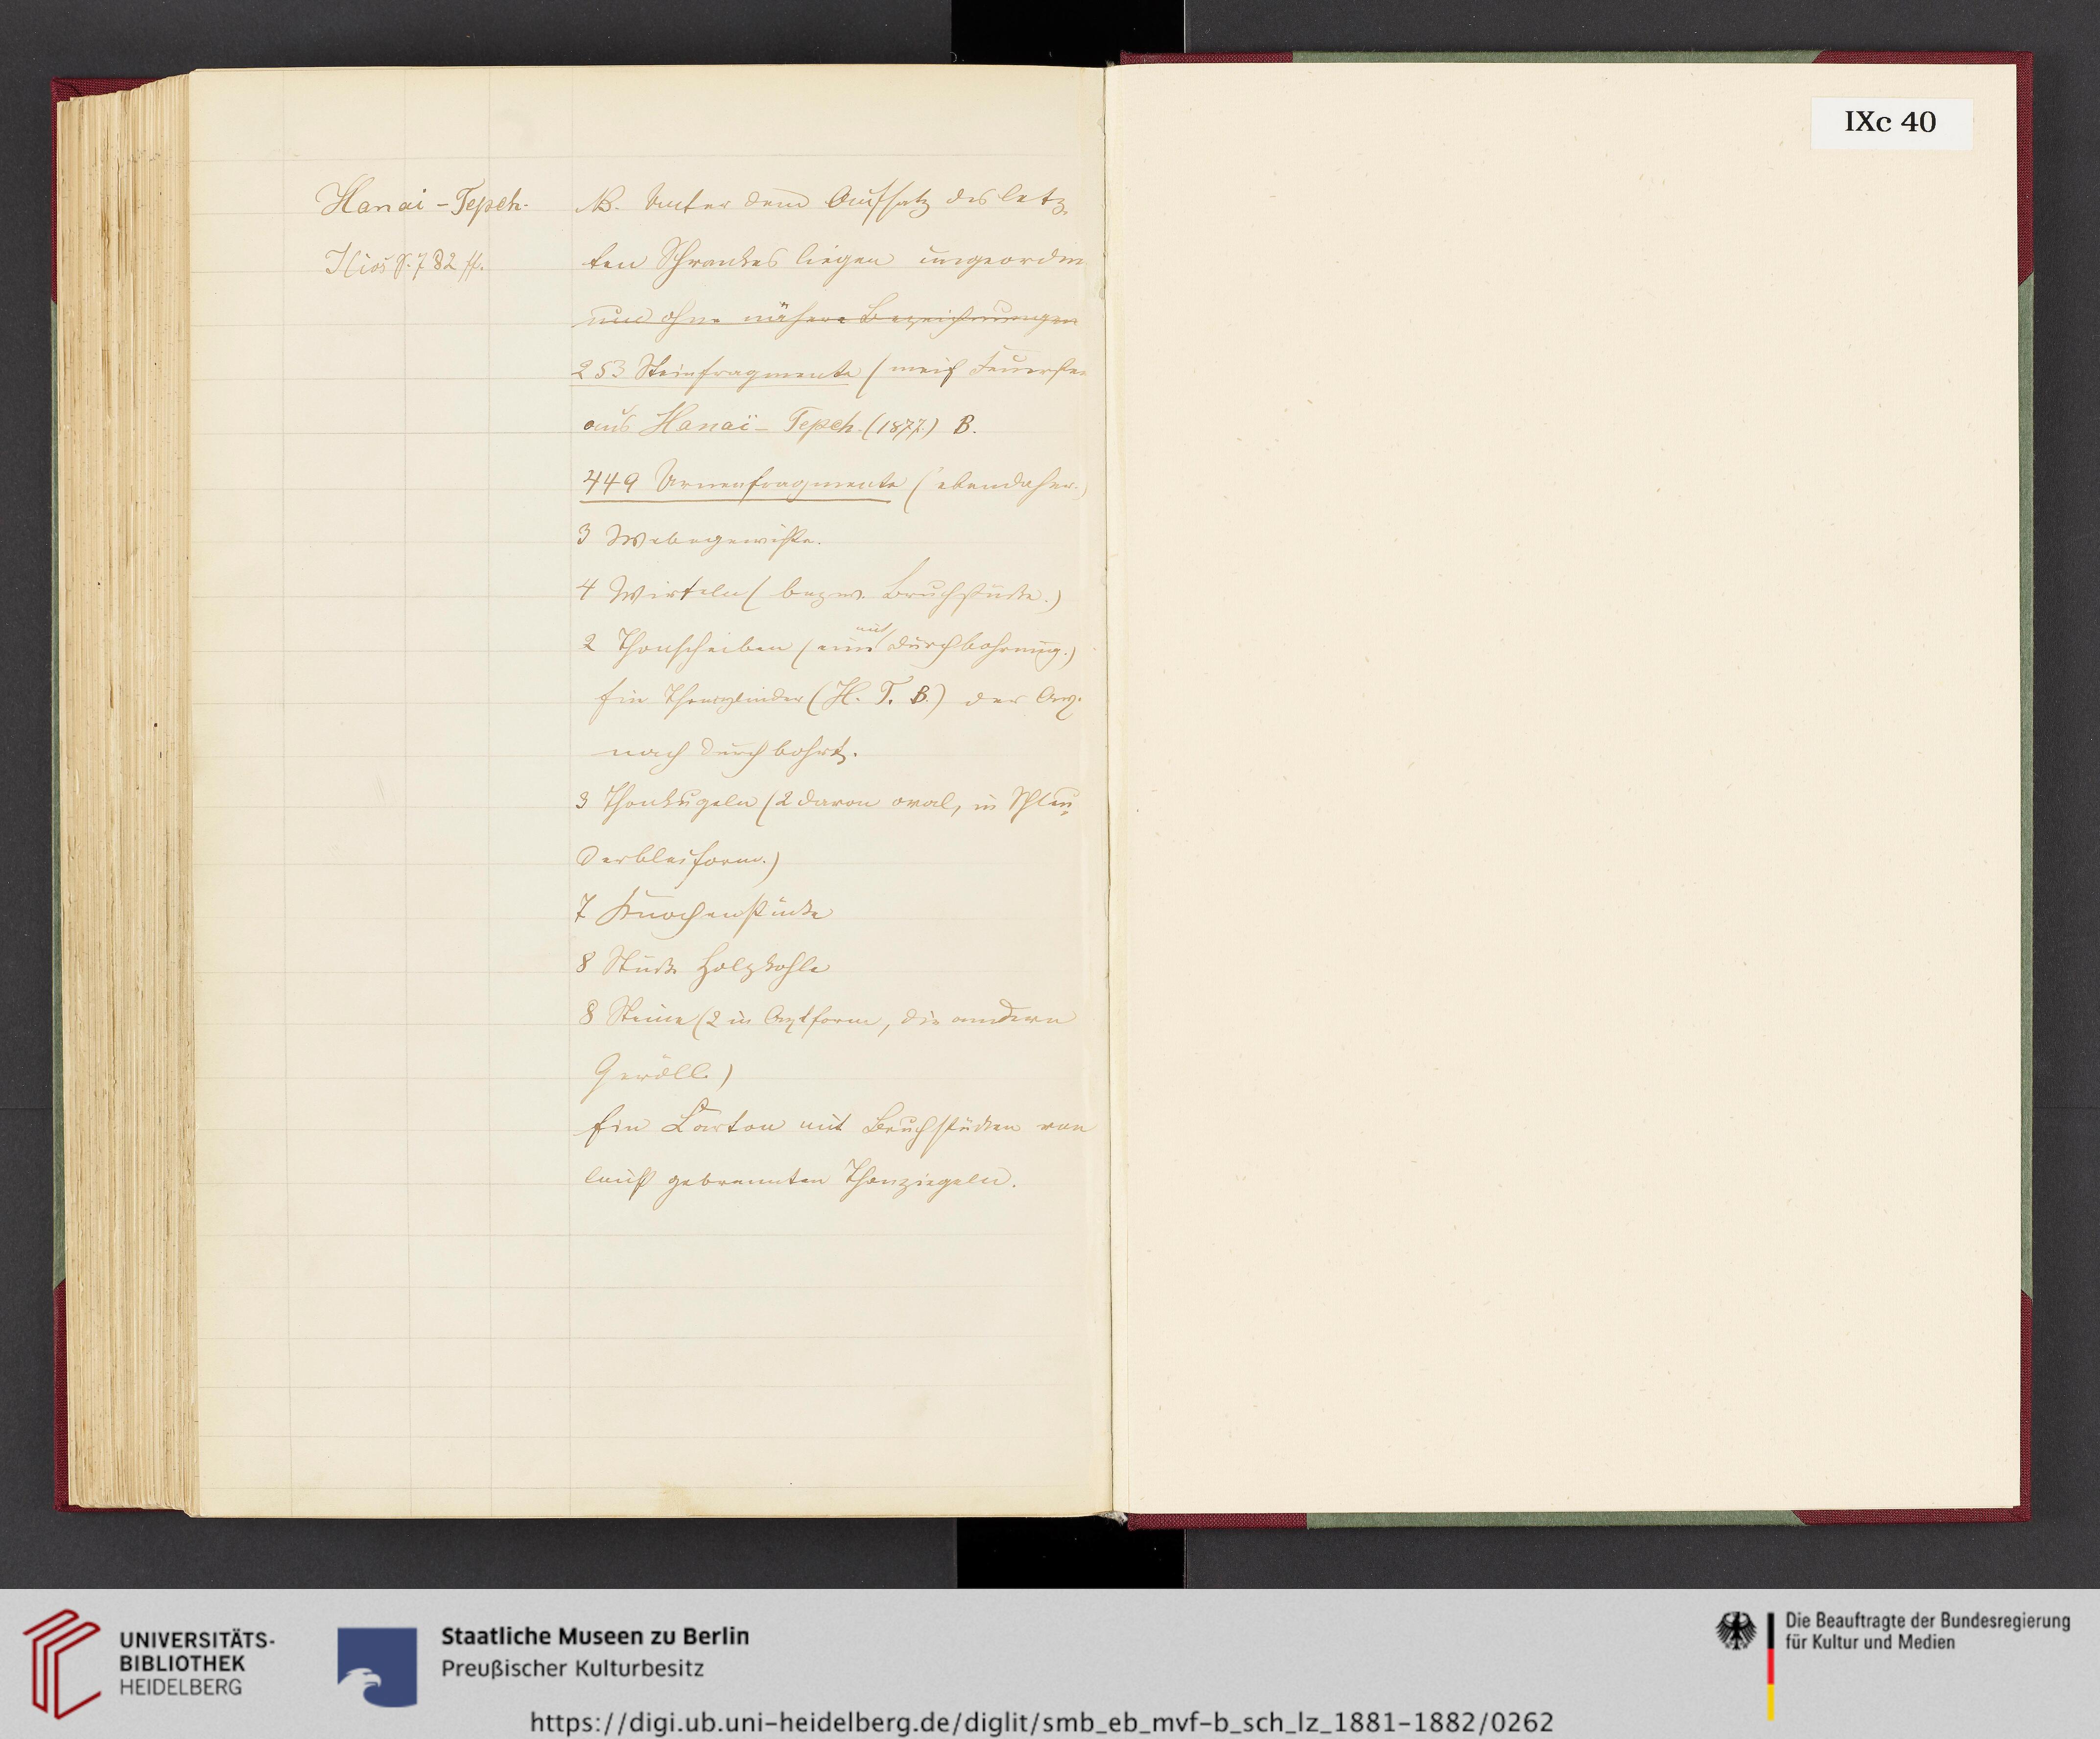 IXc 40
Hanai-Tepeh.
Ilios S. 782 ff.
NB. Unter dem Aufsatz des letz-
ten Schrankes liegen ungeordn
und ohne nähere Bezeichnungen
253 Steinfragmente (meist Feuerstei
aus Hanaï-Tepeh. (1877) B.
449 Urnenfragmente (ebendaher.)
3 Webegewichte.
4 Wirteln (bezw. Bruchstücke.)
2 Thonscheiben (eine mit Durchbohrung.)
Ein Thoncylinder (H. T. B.) der Axe
nach durchbohrt.
3 Thonkugeln (2 davon oval, in Schleu-
derbleiform.)
7 Knochenstücke
8 Stücke Holzkohle
8 Steine (2 in Axtform, die andern
Geröll.)
Ein Carton mit Bruchstücken von
gebrannten Thonziegeln.
UNIVERSITÄTS-
BIBLIOTHEK
HEIDELBERG
Staatliche Museen zu Berlin
Preußischer Kulturbesitz
https://digi.ub.uni-heidelberg.de/diglit/smb_eb_mvf-b_sch_lz_1881-1882/0262
Die Beauftragte der Bundesregierung
für Kultur und Medien